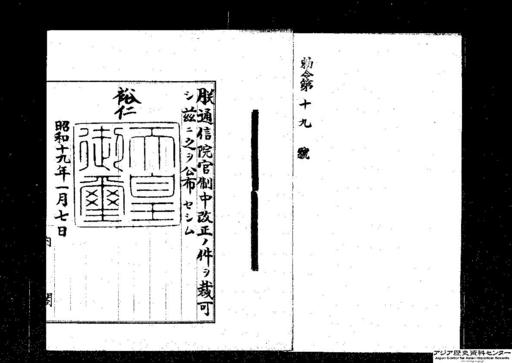 勅令第十九號
朕通信院官制中改正ノ件ヲ裁可
シ茲ニ之ヲ公布セシム
裕仁
天皇
御璽
昭和十九年一月七日
内閣
アジア歴史資料センター
Japan Center for Asian Historical Records